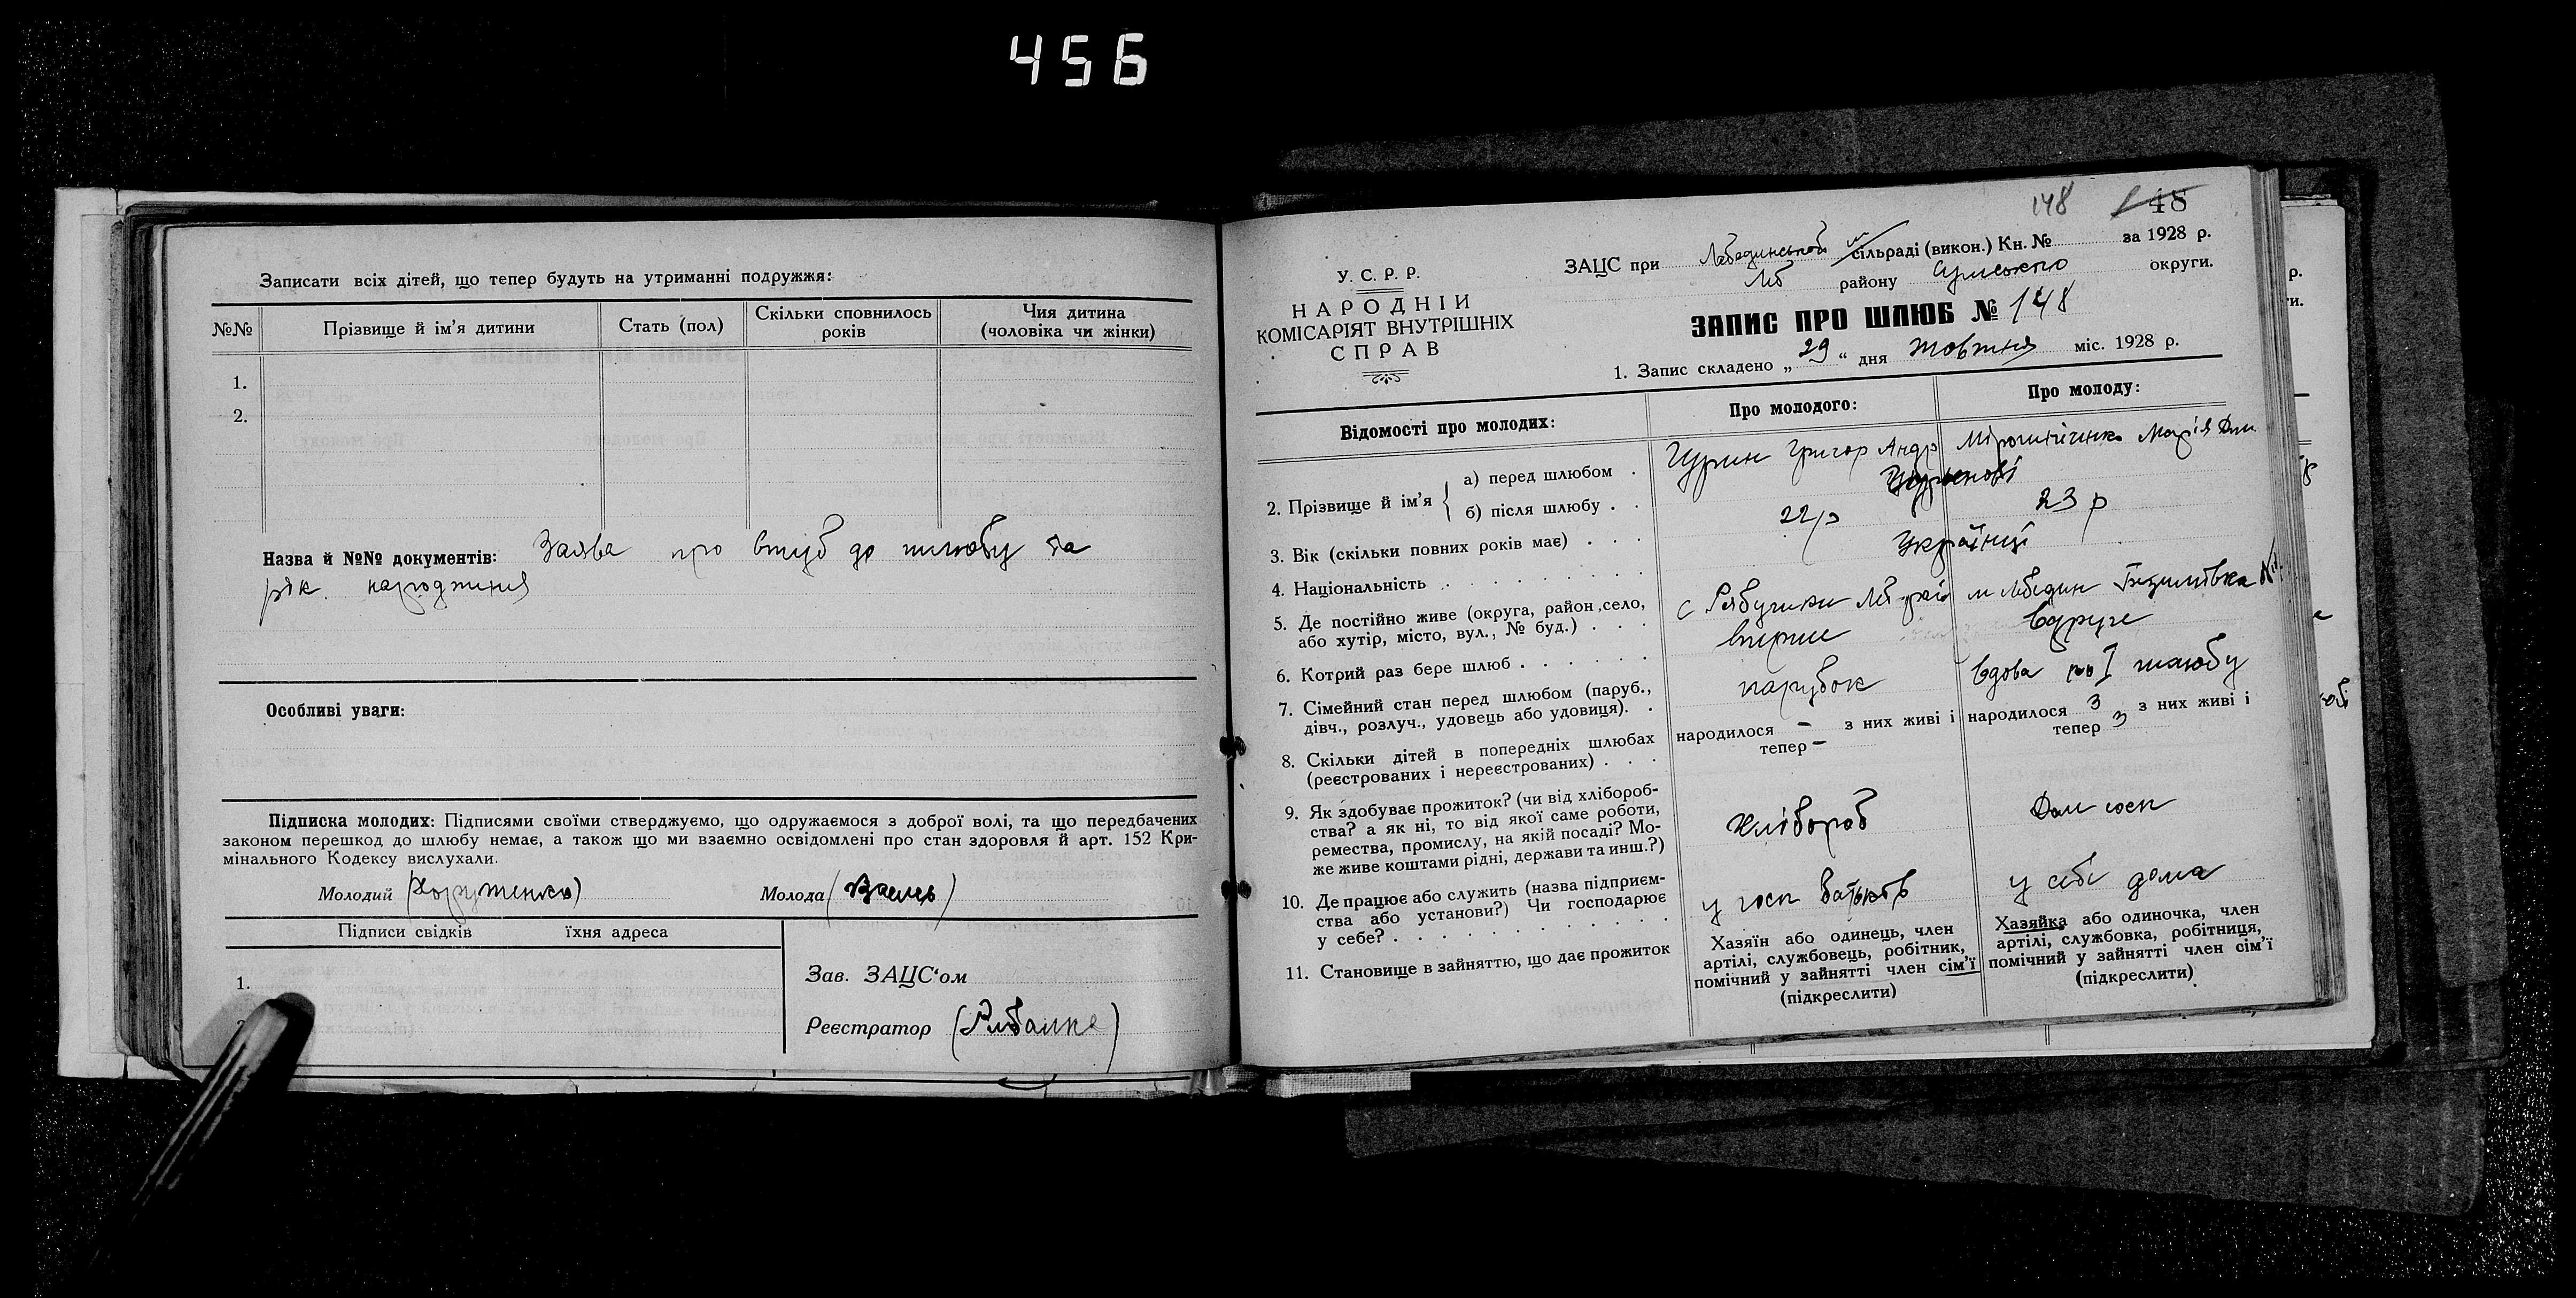 456
Записати всіх дітей, що тепер будуть на утриманні подружжя:
№№ Прізвище й ім'я дитини Стать (пол) Скільки сповнилось років Чия дитина (чоловіка чи жінки)
1.
2.
Назва й №№ документів: Заява про вступ до шлюбу та
рік народження
Особливі уваги:
Підписка молодих: Підписями своїми стверджуємо, що одружаємося з доброї волі, та що передбачених
законом перешкод до шлюбу немає, а також що ми взаємно освідомлені про стан здоровля й арт. 152 Кри-
мінального Кодексу вислухали.
Молодий Молода
Підписи свідків їхня адреса
1.
Зав. ЗАЦС'ом
Реєстратор (Рибалка)
148 148
У. С. Р. Р.
НАРОДНІЙ
КОМІСАРІЯТ ВНУТРІШНІХ
СПРАВ
ЗАЦС при Лебединській сільраді (викон.) Кн. № за 1928 р.
Леб району Сумського округи.
ЗАПИС ПРО ШЛЮБ № 148
1. Запис складено „29“ дня жовтня міс. 1928 р.
Відомості про молодих: Про молодого: Про молоду:
2. Прізвище й ім'я { а) перед шлюбом . Григор Андр Мірошніченко Марія
б) після шлюбу . .
3. Вік (скільки повних років має) . . . 22 р 23 р
4. Національність Українці
5. Де постійно живе (округа, район, село,
або хутір, місто, вул., № буд.) . . . с Рябушки Леб м Лебедин
6. Котрий раз бере шлюб вперше вдруге
7. Сімейний стан перед шлюбом (паруб.,
дівч., розлуч., удовець або удовиця). . парубок вдова по I шлюбу
8. Скільки дітей в попередніх шлюбах
(реєстрованих і нереєстрованих) . . . народилося – з них живі і тепер – народилося 3 з них живі і тепер 3
9. Як здобуває прожиток? (чи від хлібороб-
ства? а як ні, то від якої саме роботи,
ремества, промислу, на якій посаді? Мо-
же живе коштами рідні, держави та инш.?) Хлібороб Дом госп
10. Де працює або служить (назва підприєм-
ства або установи?) Чи господарює
у себе? у госп батьків у себе дома
11. Становище в зайняттю, що дає прожиток
Хазяїн або одинець, член
артілі, службовець, робітник,
помічний у зайнятті член сім'ї
(підкреслити)
Хазяйка або одиночка, член
артілі, службовка, робітниця,
помічний у зайнятті член сім'ї
(підкреслити)